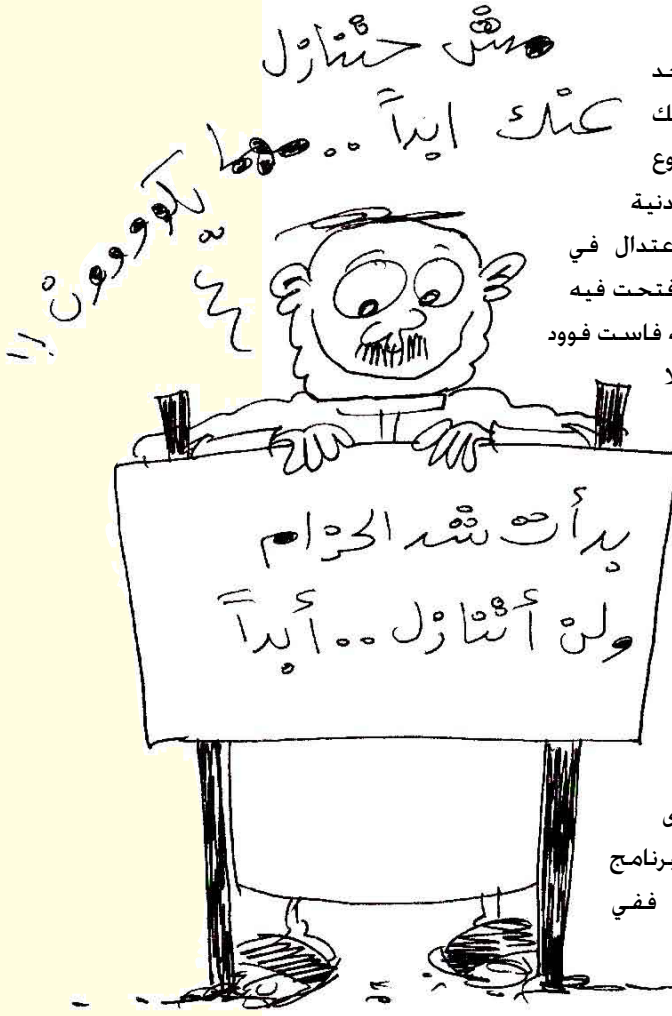 مش حتنازل
عنك ابداً .. مهما
يكووووون !!
بدأت شد الحزام
ولن أتنازل .. أبداً
عتدال في
فتحت فيه
فاست فوود
برنامج
ففي